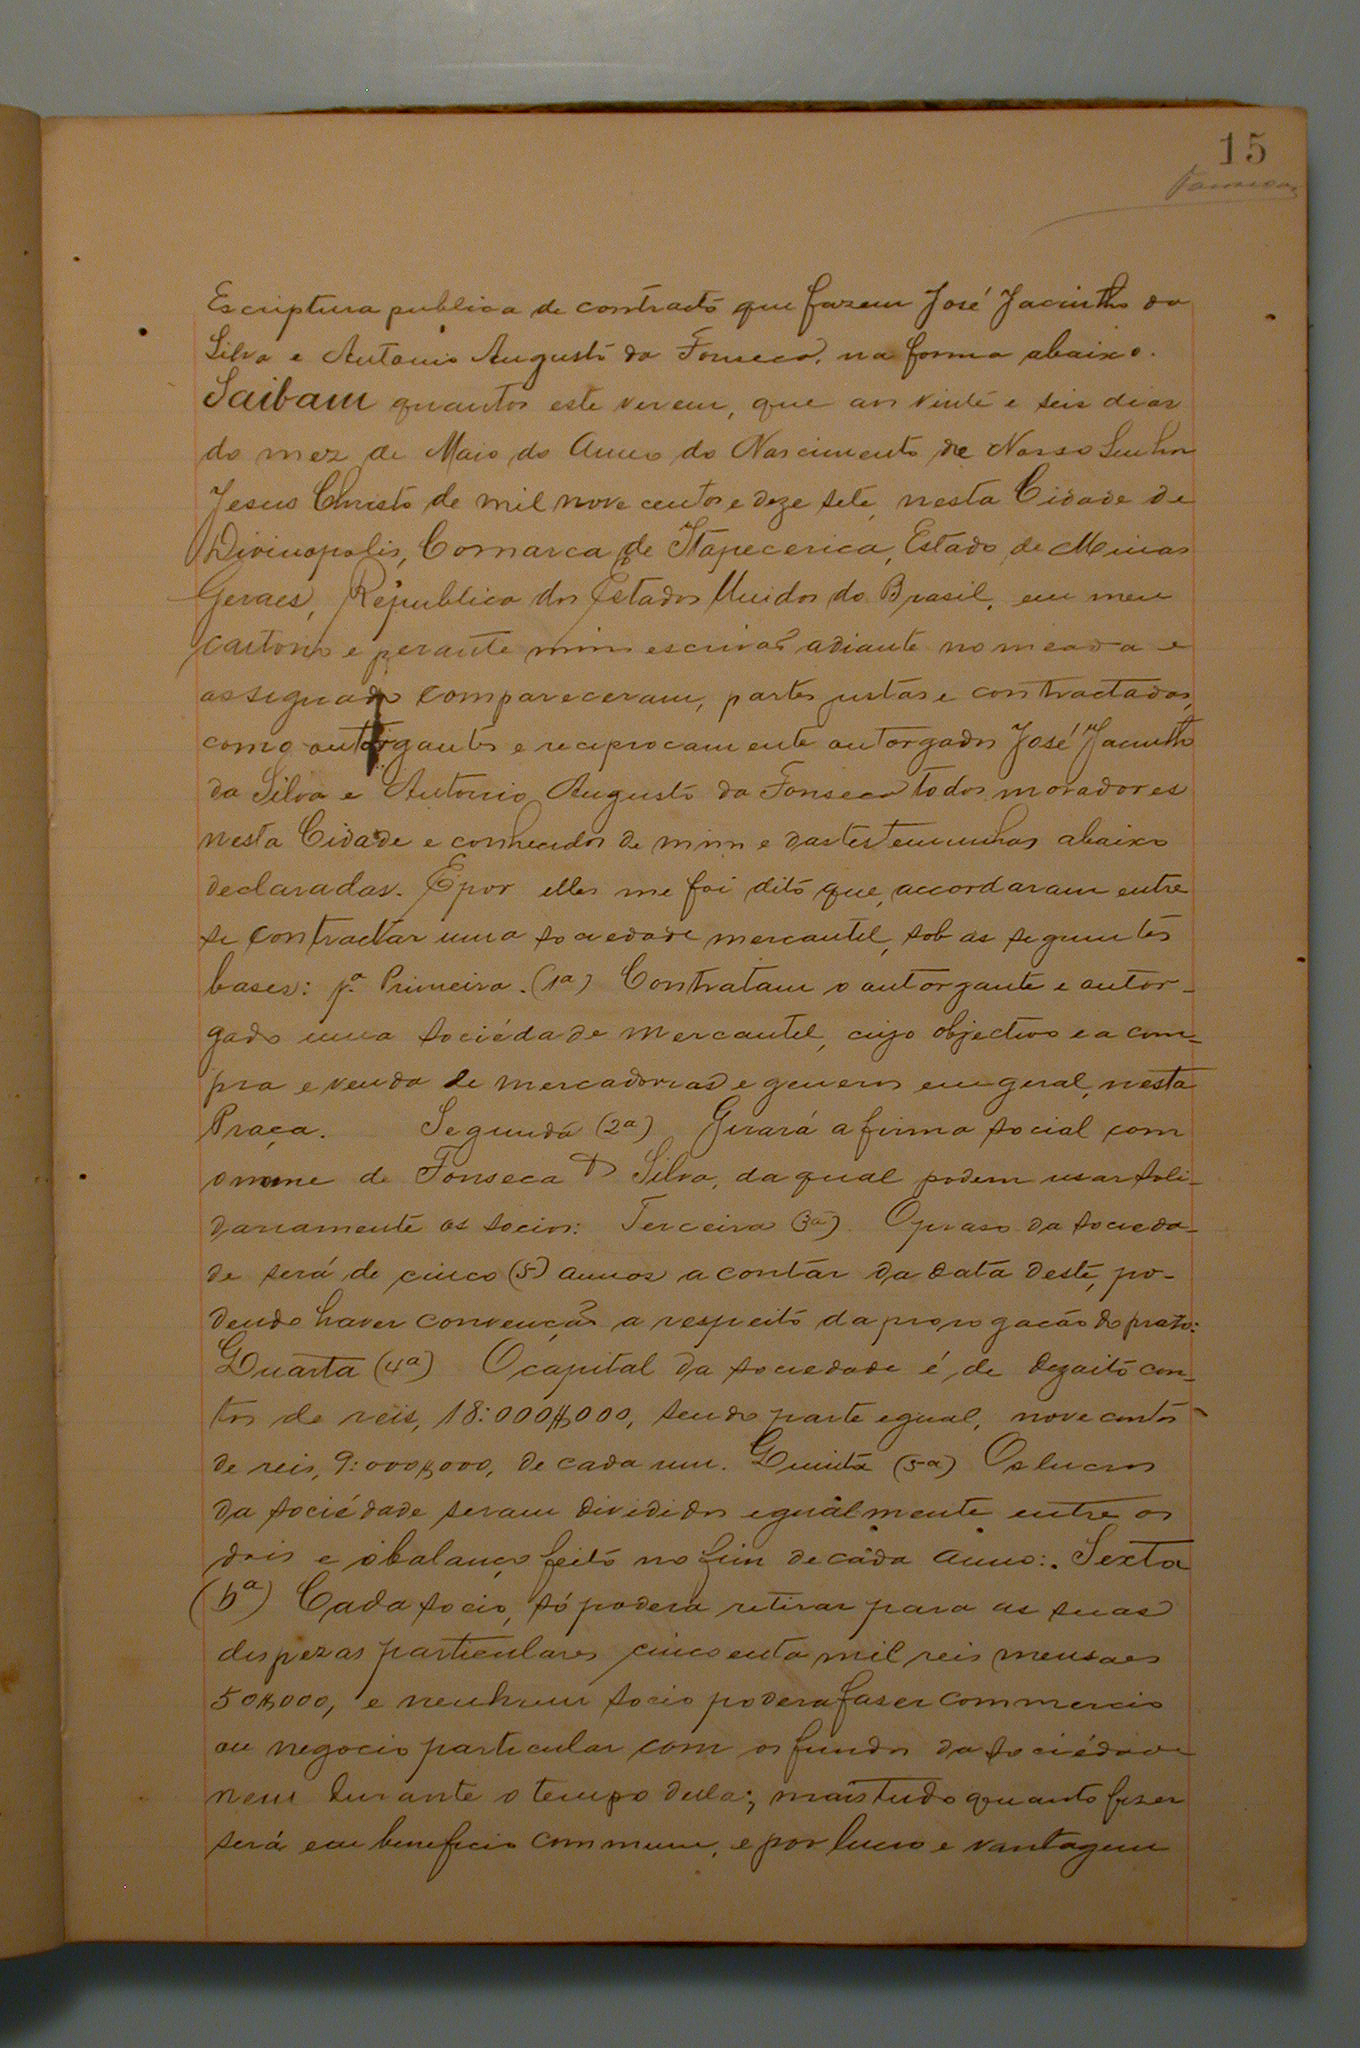 15
Escriptura publica de contracto que fazem José Jacintho da
Silva e Antonio Augusto da Fonseca, na forma abaixo.
Saibam quantos este verem, que aos vinte e seis dias
do mez de Maio do Anno do Nascimento de Nosso Senhor
Jesus Christo de mil nove centos e deze sete, nesta Cidade de
Divinopolis, Comarca de Itapecerica, Estado de Minas
Geraes, Republica dos Estados Unidos do Brasil, em meu
cartorio e perante mim escrivaõ adiante nomeado e
assignado compareceram, partes justas e contractadas,
como outorgantes e reciprocamente outorgados José Jacintho
da Silva e Antonio Augusto da Fonseca todos moradores
nesta Cidade e conhecidos de mim e das testemunhas abaixo
declaradas. E por elles me foi dito que, accordaram entre
si contractar uma sociedade mercantil, sob as seguintes
bases: pª Primeira. (1ª) Contratam o outorgante e outor-
gado uma sociédade mercantil, cujo objectivo e a com-
pra e venda de mercadorias e generos em geral, nesta
Praça. Segunda (2ª) Girará a firma social com
o nome de Fonseca & Silva, da qual podem usar soli-
dariamente os socios: Terceira (3ª) O praso da socieda-
de será de cinco (5) annos a contar da data deste, po-
dendo haver convençaõ a respeito da prorogacão do praso:
Quarta (4ª) O capital da sociedade é de dezoito con-
tos de reis, 18:000$000, sendo parte egual, nove contos
de reis, 9:000$000, de cada um. Quinta (5ª) Os lucros
da sociédade seram divididos egualmente entre os
dois e o balanço feito no fim de cada anno:. Sexta
(6ª) Cada socio, só poderá retirar para as suas
dispezas particulares cincoenta mil reis mensaes
50$000, e nenhum socio poderá faser commercio
ou negocio particular com os fundos da sociédade
nem durante o tempo della; mais tudo quanto fizer
será em beneficio commum, e por lucro e vantagem